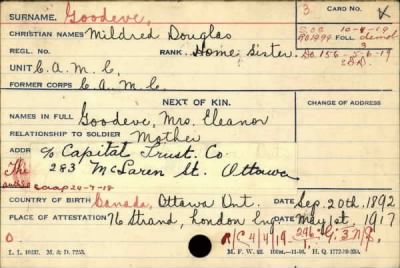 SURNAME. Goodeve, 3 CARD NO.
CHRISTIAN NAMES Mildred Douglas S.O.S. 10-4-19
REGL. NO. RANK. Home Sister. FOLL demob
UNIT C.A.M.C. D.O. 156-5-6-19
FORMER CORPS C.A.M.C.
NEXT OF KIN. CHANGE OF ADDRESS
NAMES IN FULL Goodeve, Mrs. Eleanor
RELATIONSHIP TO SOLDIER Mother
ADDRESS c/o Capital Trust. Co.
The 283 McLaren St. Ottawa
24-7-18
COUNTRY OF BIRTH Canada, Ottawa Ont. DATE Sep. 20th. 1892
PLACE OF ATTESTATION 76 Strand, London Eng DATE May 1st. 1917
O. R/C 4/4/19
L. L. M. & D. 7253. M. F. W. 22. H. Q. 1772-39-339.